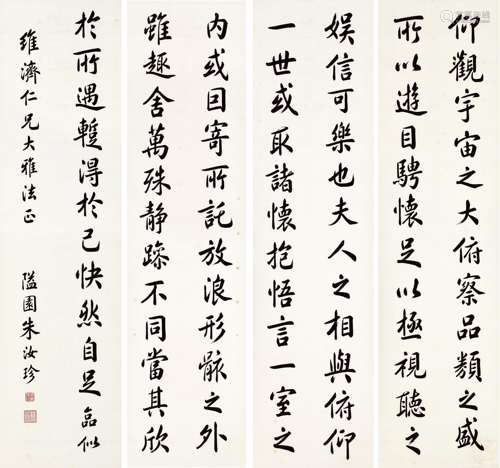 仰觀宇宙之大俯察品類之盛
所以遊目騁懷足以極視聽之
娛信可樂也夫人之相與俯仰
一世或取諸懷抱悟言一室之
內或囙寄所託放浪形骸之外
雖趣舍萬殊静躁不同當其欣
於所遇蹔得於己快然自足似
維濟仁兄大雅法正 隘園朱汝珍